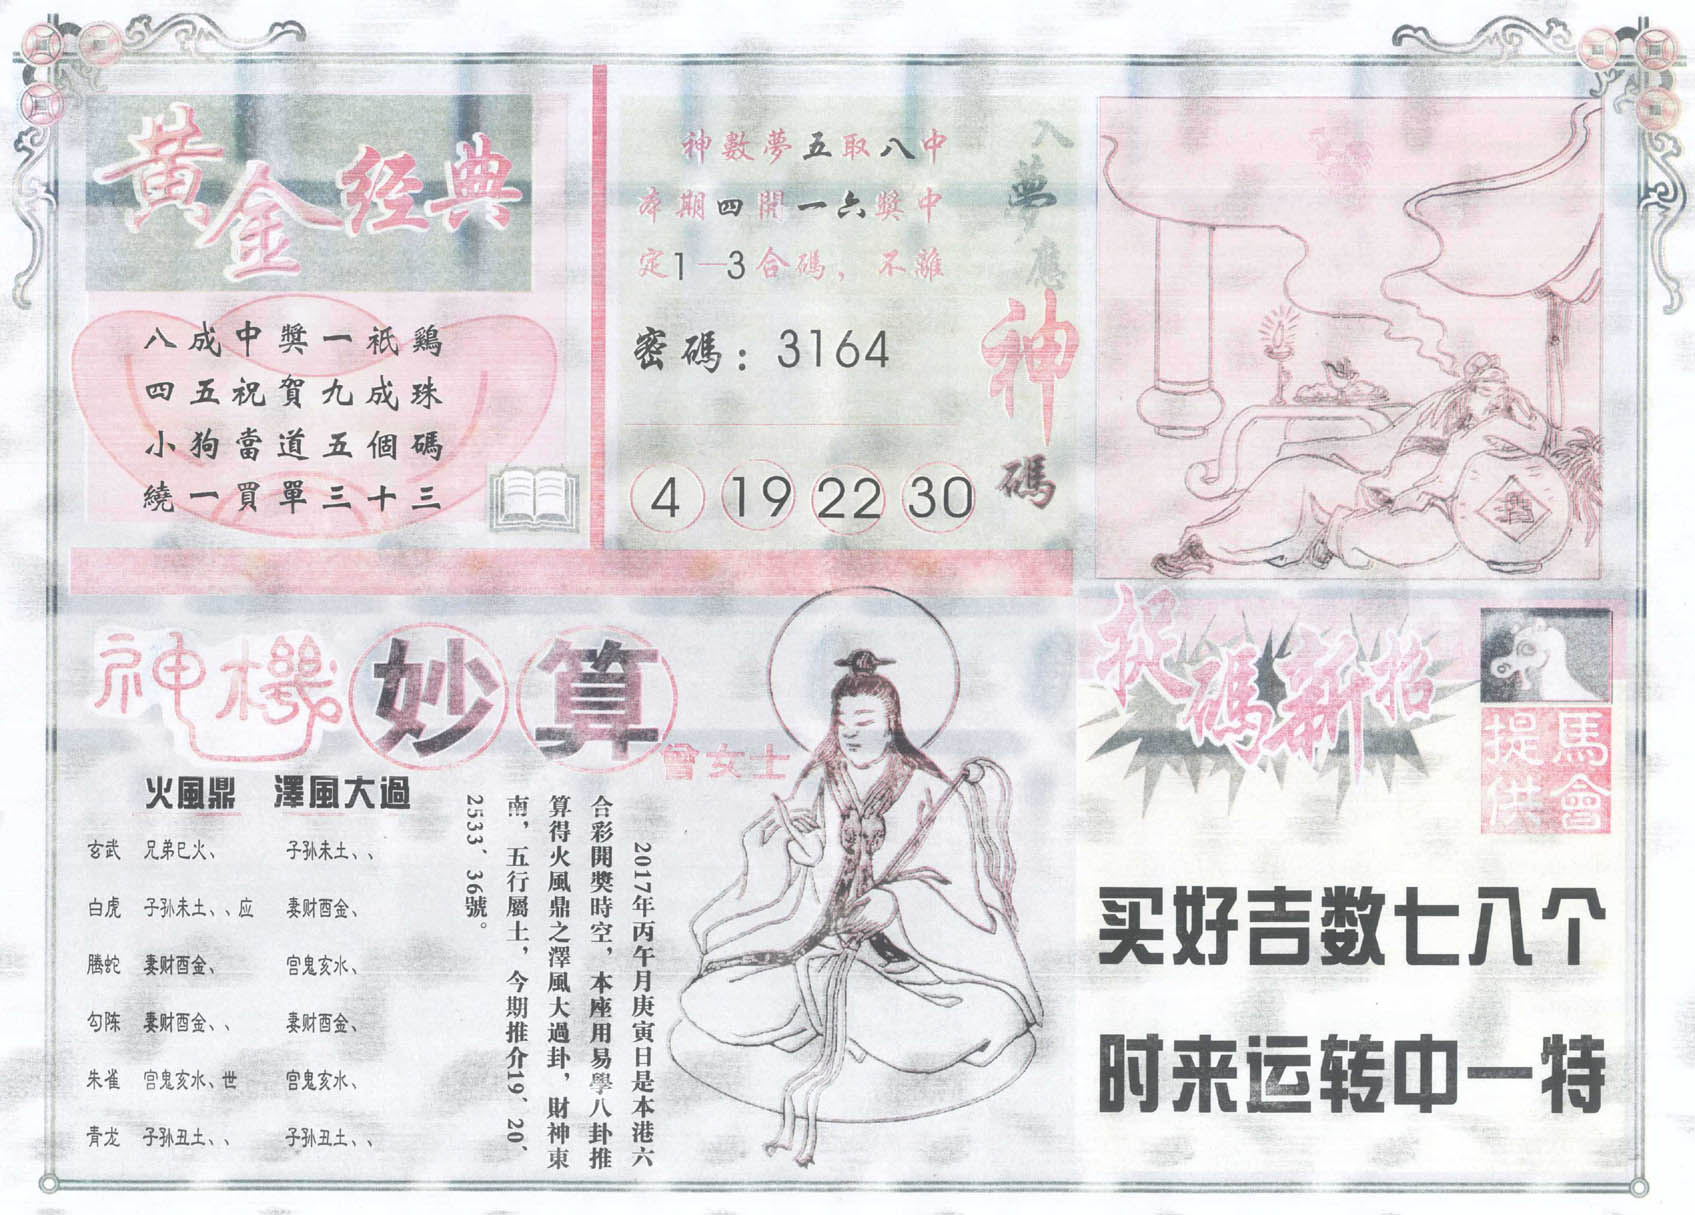 黃金经典
八成中獎一祇鷄
四五祝賀九成珠
小狗當道五個碼
繞一買單三十三
神數夢五取八中
本期四開一六獎中
定1—3合碼，不離
密碼：3164
4 19 22 30
入夢應神碼
神機妙算
曾女士
火風鼎 澤風大過
玄武 兄弟巳火、 子孙未土、、
白虎 子孙未土、、应 妻财酉金、
腾蛇 妻财酉金、 官鬼亥水、
勾陈 妻财酉金、、 妻财酉金、
朱雀 官鬼亥水、世 官鬼亥水、
青龙 子孙丑土、、 子孙丑土、、
2017年丙午月庚寅日是本港六
合彩開獎時空，本座用易學八卦推
算得火風鼎之澤風大過卦，財神東
南，五行屬土，今期推介19、20、
2533、36號。
捉碼新招
馬會
提供
买好吉数七八个
时来运转中一特